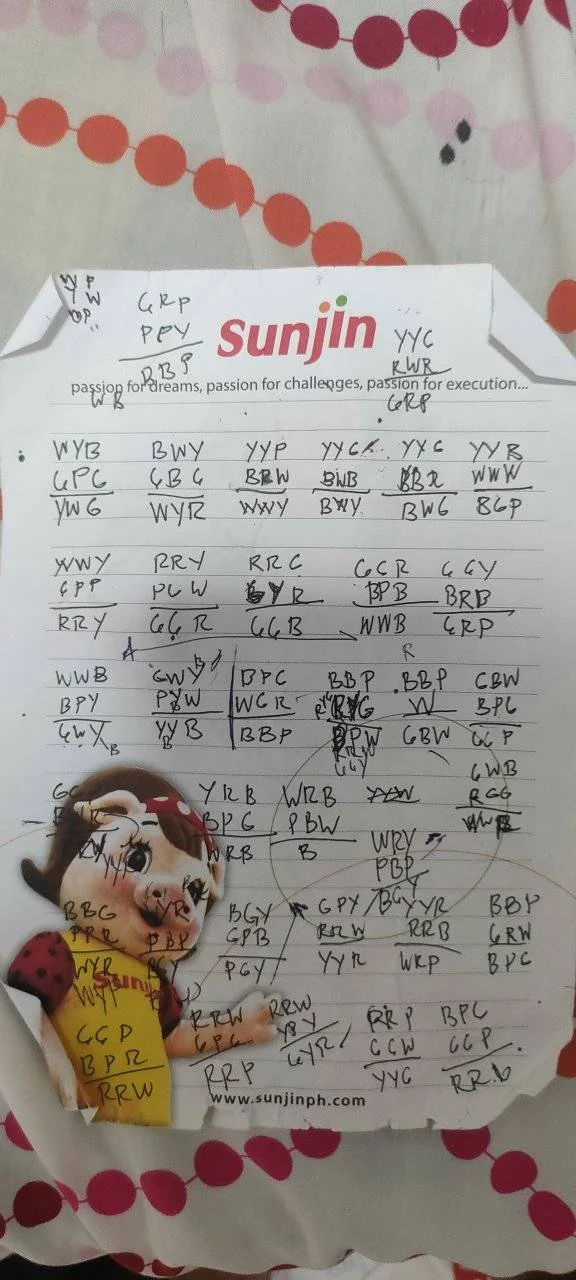 GRP
PPY
BBP
Sunjin
YYG
RWR
GRP
passion for dreams, passion for challenges, passion for execution...
WB
WYB BWY YYP YYG YYG YYR
GPG GBG BRW BWB BBR WWW
YWG WYR WWY BWY BWG BGP
WWY RRY RRG GGR GGY
GPP PGW GYR BPB BRB
RRY GGR GGB WWB GRP
A
R
WWB GWY BPG BBP BBP GBW
BPY PYW WGR RYG W BPG
GWY YYB BBP BPW GBW GGP
B B RRY
GGY
GWB
RGG
WWB
YRB WRB YYW
BPG PBW WRY
WRB B PBP
BGY
BBG YYR BGY GPY BGYYR BBP
PPR PBP GPB RRW RRB GRW
WYR BGY PGY YYR WRP BPG
WYP
Sunjin
GGP RRW RRW RRP BPG
BPR GPG YBY GGW GGP
RRW RRP GYR YYG RRB
www.sunjinph.com